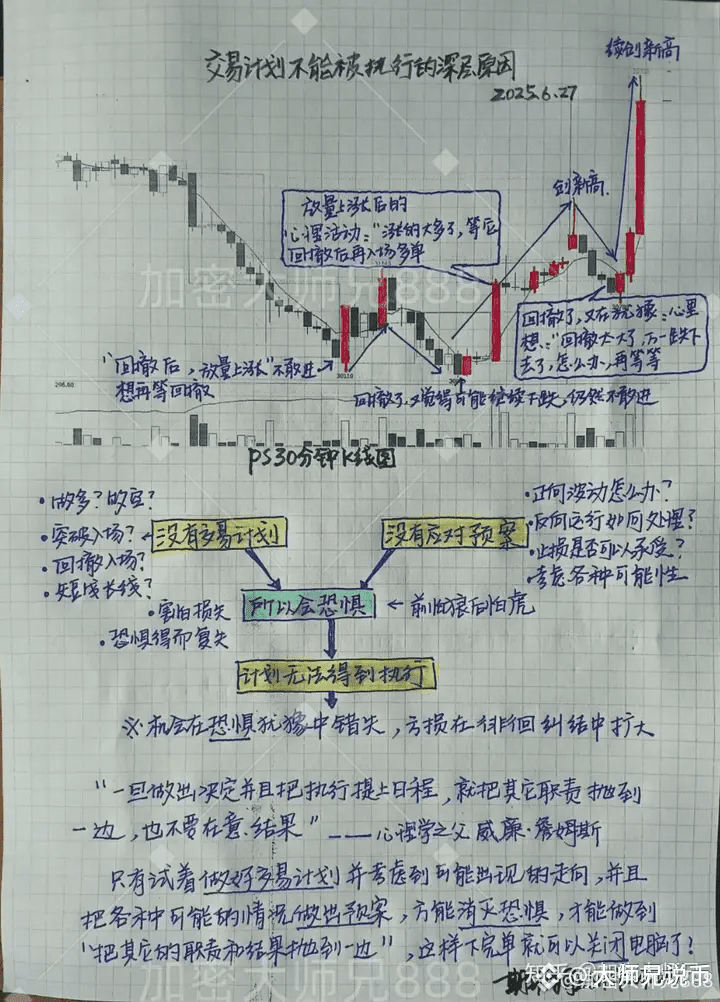 续创新高
交易计划不能被执行的深层原因
2025.6.27
创新高
放量上涨后的
心理活动:"涨的太多了,等后
回撤后再入场多单
加密大师兄888
回撤了,又在犹豫:心里
想:"回撤太大了,万一跌下
去了,怎么办,再等等
"回撤后,放量上涨"不敢进
想再等回撤
30110
296.80
回撤了,又觉得可能继续下跌,仍然不敢进
PS30分钟K线图
·做多?做空?
·突破入场?
·回撤入场?
·短线长线?
没有交易计划
没有应对预案
·正向波动怎么办?
·反向运行如何处理?
·止损是否可以承受?
·考虑各种可能性
·害怕损失
·恐惧得而复失
所以会恐惧
←前怕狼后怕虎
计划无法得到执行
※机会在恐惧犹豫中错失,亏损在徘徊纠结中扩大
"一旦做出决定并且把执行提上日程,就把其它职责抛到
一边,也不要在意结果"——心理学之父 威廉·詹姆斯
只有试着做好交易计划并考虑到可能出现的走向,并且
把各种可能的情况做出预案,方能消灭恐惧,才能做到
"把其它的职责和结果抛到一边",这样下完单就可以关闭电脑了!
加密大师兄888
知乎 @大师兄说币